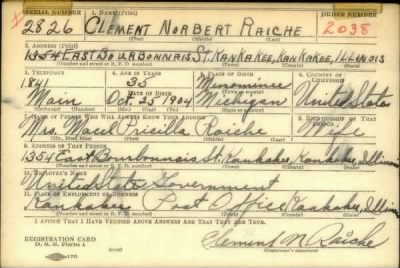 SERIAL NUMBER 1. NAME (Print) ORDER NUMBER
2826 CLEMENT NORBERT RAICHE 2038
(First) (Middle) (Last)
2. ADDRESS (Print)
1354 EAST BOURBONNAIS ST. KANKAKEE, KANKAKEE, ILLINOIS
(Number and street or R. F. D. number) (Town) (County) (State)
3. TELEPHONE 4. AGE IN YEARS 5. PLACE OF BIRTH 6. COUNTRY OF CITIZENSHIP
1841 35 Menominee
Main Oct. 25 1904 Michigan United States
7. NAME OF PERSON WHO WILL ALWAYS KNOW YOUR ADDRESS 8. RELATIONSHIP OF THAT PERSON
Mrs. Priscilla Raiche Wife
(Mr., Mrs., Miss) (First) (Middle) (Last)
9. ADDRESS OF THAT PERSON
1354 East Bourbonnais St. Kankakee, Kankakee, Illinois
(Number and street or R. F. D. number) (Town) (County) (State)
10. EMPLOYER'S NAME
United States Government
11. PLACE OF EMPLOYMENT OR BUSINESS
Kankakee Post Office Kankakee, Illinois
(Number and street or R. F. D. number) (Town) (County) (State)
I AFFIRM THAT I HAVE VERIFIED ABOVE ANSWERS AND THAT THEY ARE TRUE.
REGISTRATION CARD
D. S. S. Form 1 Clement N Raiche
(Registrant's signature)